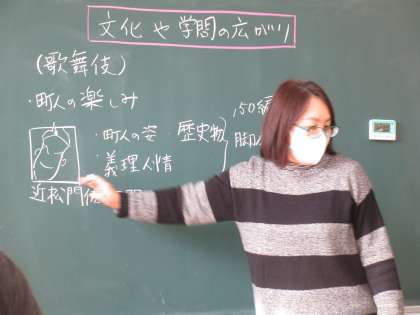 文化や学問の広がり
(歌舞伎)
・町人の楽しみ
・町人の姿 歴史物
150編
・義理人情
脚
近松門